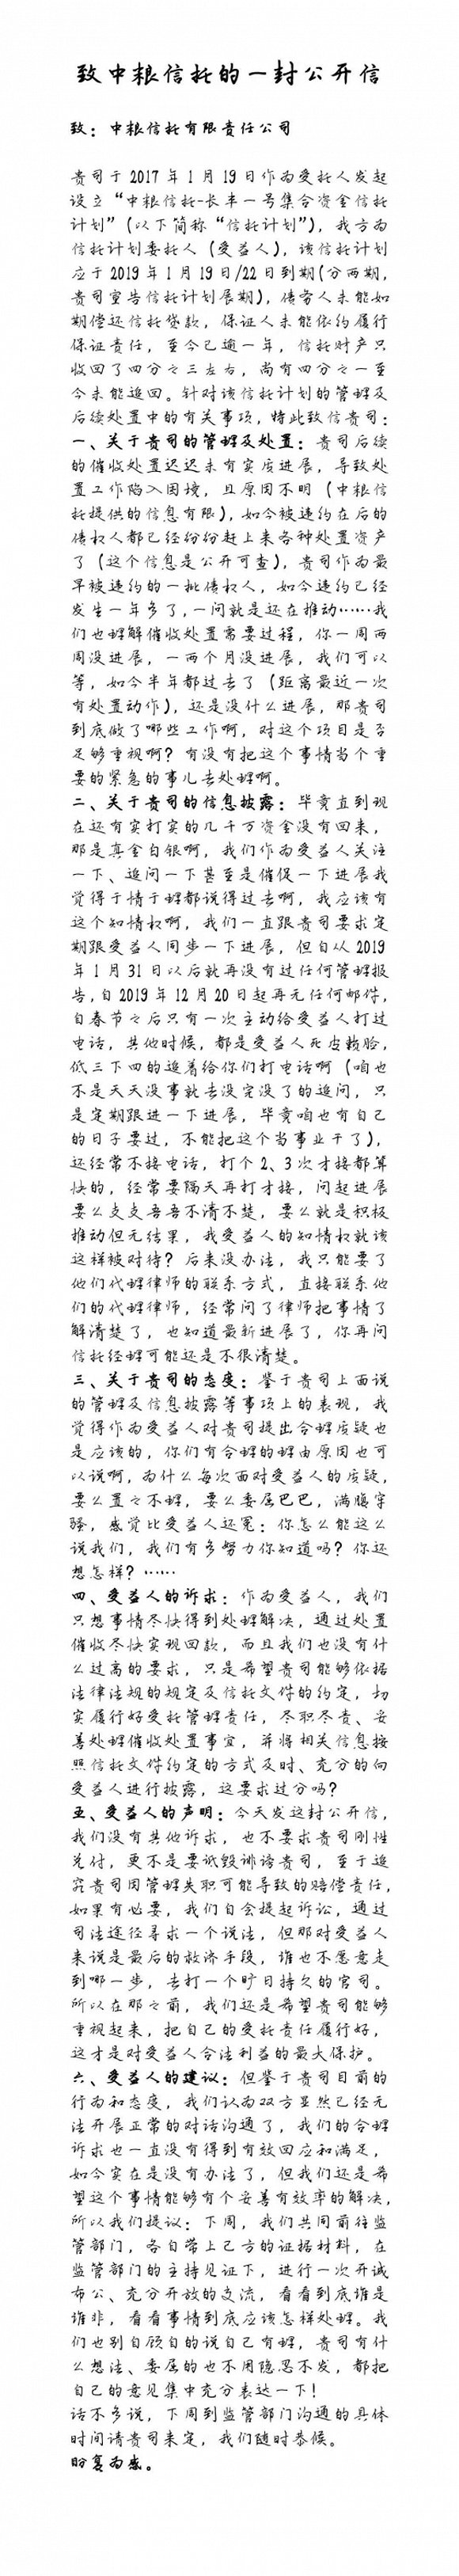 致中粮信托的一封公开信
致：中粮信托有限责任公司
贵司于 2017 年 1 月 19 日作为受托人发起
设立“中粮信托-长丰一号集合资金信托
计划”(以下简称“信托计划”)，我方为
信托计划委托人（受益人），该信托计划
应于 2019 年 1 月 19 日/22 日到期(分两期，
贵司宣告信托计划展期)，债务人未能如
期偿还信托贷款，保证人未能依约履行
保证责任，至今已逾一年，信托财产只
收回了四分之三左右，尚有四分之一至
今未能追回。针对该信托计划的管理及
后续处置中的有关事项，特此致信贵司：
一、关于贵司的管理及处置：贵司后续
的催收处置迟迟未有实质进展，导致处
置工作陷入困境，且原因不明（中粮信
托提供的信息有限），如今被违约在后的
债权人都已经纷纷赶上来各种处置资产
了（这个信息是公开可查），贵司作为最
早被违约的一批债权人，如今违约已经
发生一年多了,一问就是还在推动……我
们也理解催收处置需要过程，你一周两
周没进展，一两个月没进展，我们可以
等，如今半年都过去了（距离最近一次
有处置动作），还是没什么进展，那贵司
到底做了哪些工作啊，对这个项目是否
足够重视啊？有没有把这个事情当个重
要的紧急的事儿去处理啊。
二、关于贵司的信息披露：毕竟直到现
在还有实打实的几千万资金没有回来，
那是真金白银啊，我们作为受益人关注
一下、追问一下甚至是催促一下进展我
觉得于情于理都说得过去啊，我应该有
这个知情权啊，我们一直跟贵司要求定
期跟受益人同步一下进展，但自从 2019
年 1 月 31 日以后就再没有过任何管理报
告,自 2019 年 12 月 20 日起再无任何邮件,
自春节之后只有一次主动给受益人打过
电话，其他时候，都是受益人死皮赖脸，
低三下四的追着给你们打电话啊（咱也
不是天天没事就去没完没了的追问，只
是定期跟进一下进展，毕竟咱也有自己
的日子要过，不能把这个当事业干了)，
还经常不接电话，打个 2、3 次才接都算
快的，经常要隔天再打才接，问起进展
要么支支吾吾不清不楚，要么就是积极
推动但无结果，我受益人的知情权就该
这样被对待？后来没办法，我只能要了
他们代理律师的联系方式，直接联系他
们的代理律师，经常问了律师把事情了
解清楚了，也知道最新进展了，你再问
信托经理可能还是不很清楚。
三、关于贵司的态度：鉴于贵司上面说
的管理及信息披露等事项上的表现，我
觉得作为受益人对贵司提出合理质疑也
是应该的，你们有合理的理由原因也可
以说啊，为什么每次面对受益人的质疑，
要么置之不理，要么委屈巴巴，满腹牢
骚，感觉比受益人还冤：你怎么能这么
说我们，我们有多努力你知道吗？你还
想怎样？……
四、受益人的诉求：作为受益人，我们
只想事情尽快得到处理解决，通过处置
催收尽快实现回款，而且我们也没有什
么过高的要求，只是希望贵司能够依据
法律法规的规定及信托文件的约定，切
实履行好受托管理责任，尽职尽责、妥
善处理催收处置事宜，并将相关信息按
照信托文件约定的方式及时、充分的向
受益人进行披露，这要求过分吗？
五、受益人的声明：今天发这封公开信，
我们没有其他诉求，也不要求贵司刚性
兑付，更不是要诋毁诽谤贵司，至于追
究贵司因管理失职可能导致的赔偿责任，
如果有必要，我们自会提起诉讼，通过
司法途径寻求一个说法，但那对受益人
来说是最后的救济手段，谁也不愿意走
到哪一步，去打一个旷日持久的官司。
所以在那之前，我们还是希望贵司能够
重视起来，把自己的受托责任履行好，
这才是对受益人合法利益的最大保护。
六、受益人的建议：但鉴于贵司目前的
行为和态度，我们认为双方显然已经无
法开展正常的对话沟通了，我们的合理
诉求也一直没有得到有效回应和满足，
如今实在是没有办法了，但我们还是希
望这个事情能够有个妥善有效率的解决，
所以我们提议：下周，我们共同前往监
管部门，各自带上己方的证据材料，在
监管部门的主持见证下，进行一次开诚
布公、充分开放的交流，看看到底谁是
谁非，看看事情到底应该怎样处理。我
们也别自顾自的说自己有理，贵司有什
么想法、委屈的也不用隐忍不发，都把
自己的意见集中充分表达一下！
话不多说，下周到监管部门沟通的具体
时间请贵司来定，我们随时恭候。
盼复为感。